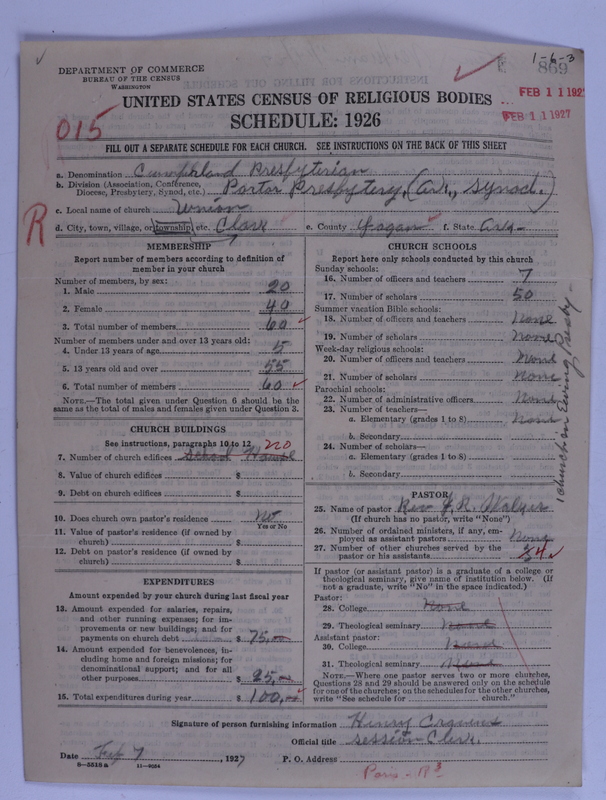 1-6-3
DEPARTMENT OF COMMERCE
BUREAU OF THE CENSUS
WASHINGTON
869
FEB 11 1927
FEB 11 1927
UNITED STATES CENSUS OF RELIGIOUS BODIES
SCHEDULE: 1926
015
FILL OUT A SEPARATE SCHEDULE FOR EACH CHURCH. SEE INSTRUCTIONS ON THE BACK OF THIS SHEET
a. Denomination Cumberland Presbyterian
b. Division (Association, Conference, Diocese, Presbytery, Synod, etc.) Porter Presbytery, (Ark., Synod.)
c. Local name of church Union
R
d. City, town, village, or township, etc. Clark e. County Logan f. State Ark-
MEMBERSHIP
Report number of members according to definition of
member in your church
Number of members, by sex:
1. Male 20
2. Female 40
3. Total number of members 60
Number of members under and over 13 years old:
4. Under 13 years of age 5
5. 13 years old and over 55
6. Total number of members 60
NOTE.—The total given under Question 6 should be the
same as the total of males and females given under Question 3.
CHURCH BUILDINGS
See instructions, paragraphs 10 to 12
no
7. Number of church edifices School House
8. Value of church edifices $
9. Debt on church edifices $
10. Does church own pastor's residence No
Yes or No
11. Value of pastor's residence (if owned by
church) $
12. Debt on pastor's residence (if owned by
church) $
EXPENDITURES
Amount expended by your church during last fiscal year
13. Amount expended for salaries, repairs,
and other running expenses; for im-
provements or new buildings; and for
payments on church debt $ 75.00
14. Amount expended for benevolences, in-
cluding home and foreign missions; for
denominational support; and for all
other purposes $ 25.00
15. Total expenditures during year $ 100.00
CHURCH SCHOOLS
Report here only schools conducted by this church
Sunday schools:
16. Number of officers and teachers 7
17. Number of scholars 50
Summer vacation Bible schools:
18. Number of officers and teachers None
19. Number of scholars None
Week-day religious schools:
20. Number of officers and teachers None
21. Number of scholars None
Parochial schools:
22. Number of administrative officers None
23. Number of teachers—
a. Elementary (grades 1 to 8) None
b. Secondary
24. Number of scholars—
a. Elementary (grades 1 to 8)
b. Secondary
PASTOR
25. Name of pastor Rev J.R.
(If church has no pastor, write "None")
26. Number of ordained ministers, if any, em-
ployed as assistant pastors None
27. Number of other churches served by the
pastor or his assistants 4
If pastor (or assistant pastor) is a graduate of a college or
theological seminary, give name of institution below. (If
not a graduate, write "No" in the space indicated.)
Pastor:
28. College None
29. Theological seminary None
Assistant pastor:
30. College None
31. Theological seminary None
NOTE.—Where one pastor serves two or more churches,
Questions 28 and 29 should be answered only on the schedule
for one of the churches; on the schedules for the other churches,
write "See schedule for church."
Signature of person furnishing information Henry
Official title Session Clerk.
Date Feb 7, 1927 P. O. Address
8—5518a 11—9024
Paris - R 3